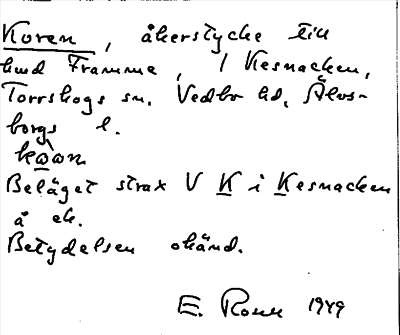 Koren, åkerstycke till
hmd Framme, 1 Kesnacken,
Torrskogs sn. Vedbo hd, Älvs-
borgs l.
Beläget strax V K i Kesnacken
å ek.
Betydelsen okänd.
E. Rosen 1949